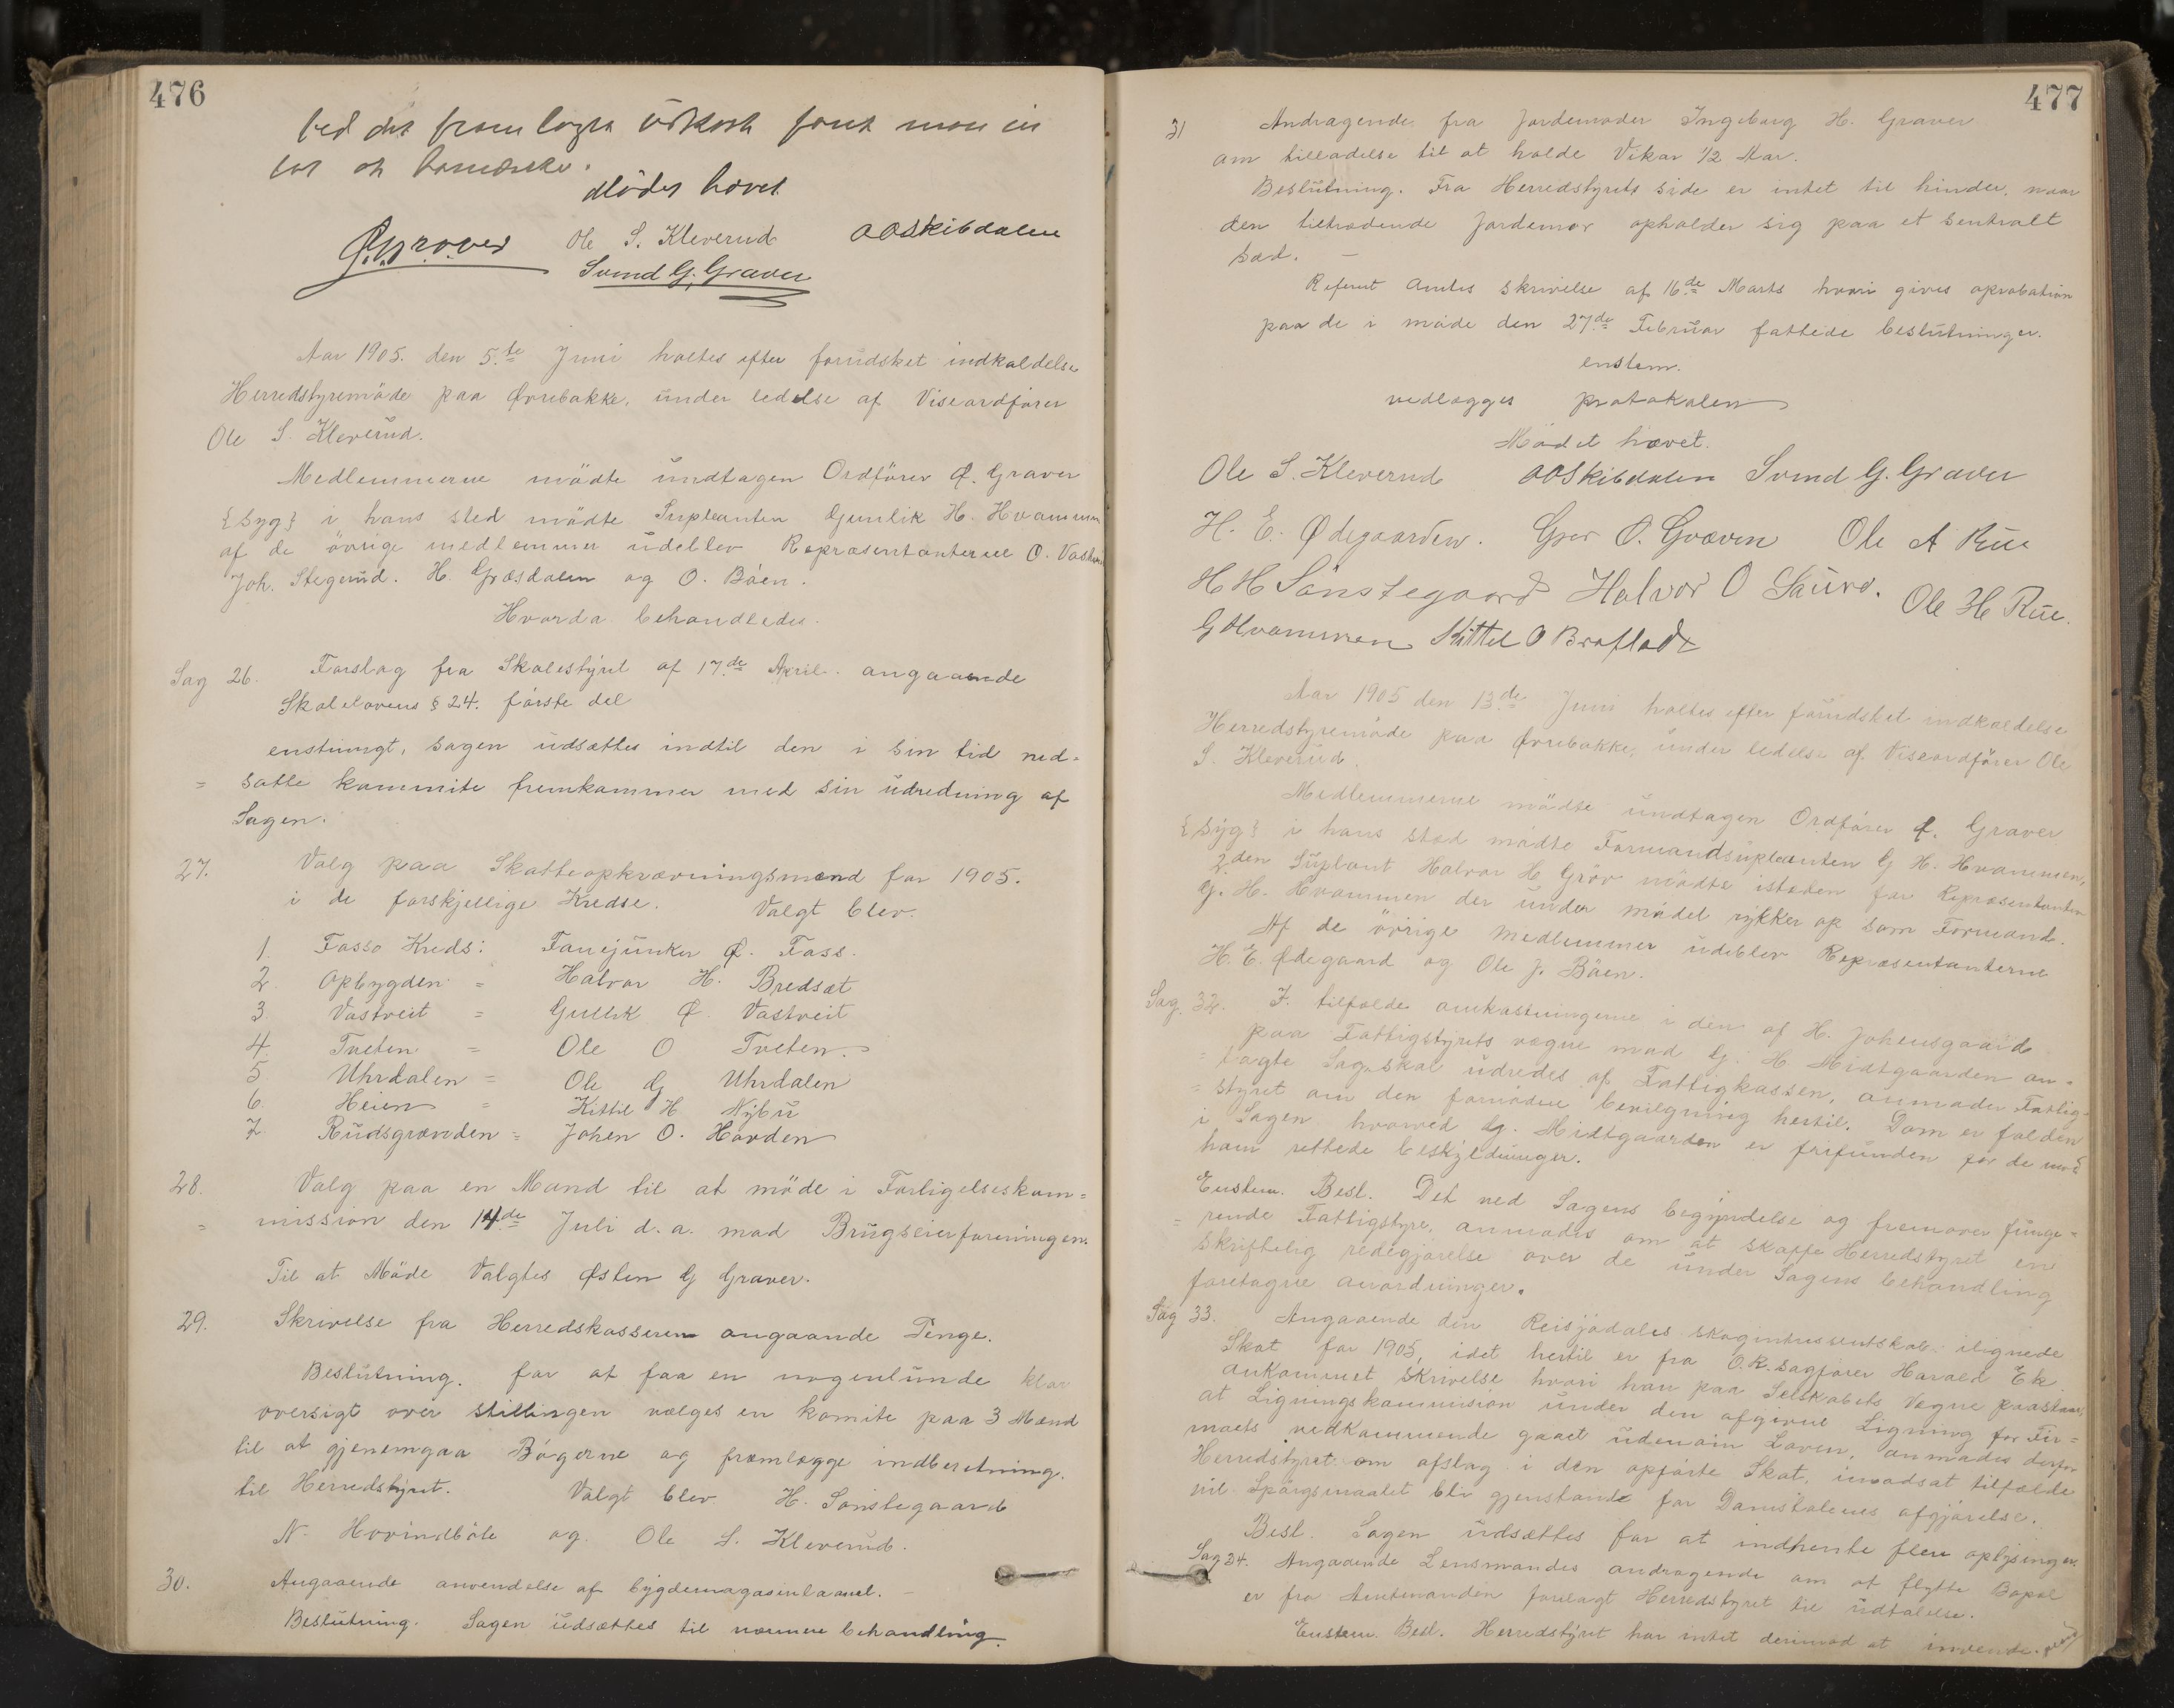 476
ved det fremlagte Udkast fandt man in
tet at bemærke.
Mödet hævet
Ø. Graver Ole S. Kleverud OOSkibdalen
Svend G. Graver
Aar 1905. den 5.te Juni holtes efter forudsket indkaldelse
Herredstyremöde paa Övrebakke, under ledelse af Viseordförer
Ole S. Kleverud.
Medlemmerne mödte undtagen Ordförer Ø. Graver
{Syg} i hans sted mödte Supleanten Gunlik H. Hvammen
af de övrige medlemmer udeblev Repræsentanterne O. Vastveit
Joh. Stegerud. H. Græsdalen og O. Böen.
Hvorda behandledes.
Sag 26. Forslag fra Skolestyret af 17.de April. angaaende
Skolelovens § 24. förste del
enstimgt, sagen udsættes indtil den i sin tid ned-
= satte kommite fremkommer med sin udredning af
Sagen.
27. Valg paa Skatteopkrævningsmænd for 1905.
i de forskjellige Kredse. Valgt blev.
1. Fasso Kreds: Fanejunker Ø. Fass.
2. Opbygden = Halvor H. Bredsæt
3. Vastveit = Gullik Ø. Vastveit
4. Tveten = Ole O Tveten.
5. Uhrdalen = Ole G Uhrdalen
6. Heien = Kittil H. Nybu
7. Rudsgrænden = Johen O. Hovden
28. Valg paa en Mand til at möde i Forligelseskom=
= mission den 14de Juli d. a. mod Brugseierforeningen.
Til at Möde Valgtes Østen G Graver.
29. Skrivelse fra Herredskasseren angaande Penge.
Beslutning. for at faa en nogenlunde klar
oversigt over stillingen vælges en komite paa 3 Mænd
til at gjenemgaa Bögerne og fremlægge indberetning.
til Herredstyret. Valgt blev H. Sönstegaard
N. Hovindböle og Ole S. Kleverud.
30. Angaaende anvendelse af bygdemagasinlaanet.
Beslutning. Sagen udsættes til nærmere behandling.
477
31 Andragende fra Jordemoder Ingeborg H. Graver
om tilladelse til at holde Vikar 1/2 Aar.
Beslutning. Fra Herredstyrets side er intet til hinder, naar
den tiltrædende Jordemor opholder sig paa et sentralt
sted. —
Referert Amtets skrivelse af 16de Marts hvori gives aprobation
paa de i möde den 27de Februar fattede beslutninger.
enstem.
vedlægges protokolen
Mödet hævet.
Ole S. Kleverud OOSkibdalen Svend G. Graver
H. E. Ødegaarden. Gror O. Græven Ole A Rue
H H Sönstegaard Halvor O Sauro. Ole H Rue.
G Hvammen Kittel O Brøflodt
Aar 1905 den 13de Juni holtes efter forudsket indkaldelse
Herredstyremöde paa Övrebakke, under ledelse af Viseordförer Ole
S. Kleverud.
Medlemmerne mödte undtagen Ordförer Ø. Graver
{Syg} i hans sted mödte Formandsupleanten G H. Hvammen,
2den Suplant Halvor H Gröv mödte isteden for Repræsentanten
G. H. Hvammen der under mödet rykker op som Formand.
Af de övrige medlemmer udeblev Repræsentanterne
H. E. Ødegaard og Ole J. Böen.
Sag. 32. I. tilfælde omkostningerne i den af H. Johensgaard
paa Fattigstyrets vegne mod G. H Midtgaarden an=
= lagte Sag, skal udredes af Fattigkassen, anmoder Fattig-
= styret om den fornödne bevilgning hertil. Dom er falden
i Sagen hvorved G. Midtgaarden er frifunden for de mod
ham rettede beskjeldninger.
Enstem. Besl. Det ved Sagens begyndelse og fremover funge=
= rende Fattigstyre, anmodes om at skaffe Herredstyret en
skriftelig redegjörelse over de under Sagens behandling
foretagne anordninger.
Sag 33. Angaaende den Reisjödales skoginteressentskab ilignede
Skat for 1905, idet hertil er fra O.R.sagförer Harald Ek
ankommet skrivelse hvori han paa Selskabets Vegne paastaar,
at Ligningskommision under den afgivne Ligning for Fir=
maets vedkommende gaaet udenom Loven, anmodes derfor
Herredstyret om afslag i den opförte Skat, imodsat tilfælde
vil Spörgsmaalet bli gjenstand for Domstolenes afgjörelse.
Besl. Sagen udsættes for at indhente flere oplysinger.
Sag 34. Angaaende Lensmandes andragende om at flytte Bopæl
er fra Amtmanden forelagt Herredstyret til udtalelse.
Enstem. Besl. Herredstyret har intet derimod at invende.